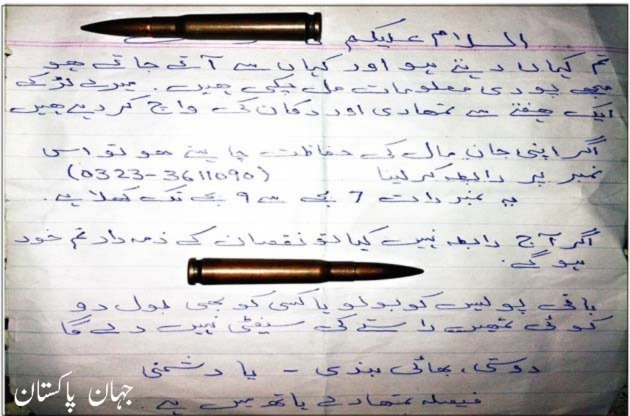 السلام علیکم
تم کہاں رہتے ہو اور کہاں سے آتے جاتے ہو
مجھے پوری معلومات مل چکی ھیں۔ میرے لڑکے
ایک ہفتے سے تمھاری اور دکان کی واچ کر رہے ھیں
اگر اپنی جان مال کی حفاظت چاہتے ھو تو اس
نمبر پر رابطہ کر لینا (0323-3611090)
یہ نمبر رات 7 بجے سے 9 بجے تک کھلا ہے۔
اگر آج رابطہ نہیں کیا تو نقصان کے ذمہ دار تم خود
ہو گے۔
باقی پولیس کو بولو یا کسی کو بھی بول دو
کوئی تمھیں راستے کی سیفٹی نہیں دے گا
دوستی، بھائی بندی - یا دشمنی
فیصلہ تمھارے ہاتھ میں ہے۔
جہان پاکستان